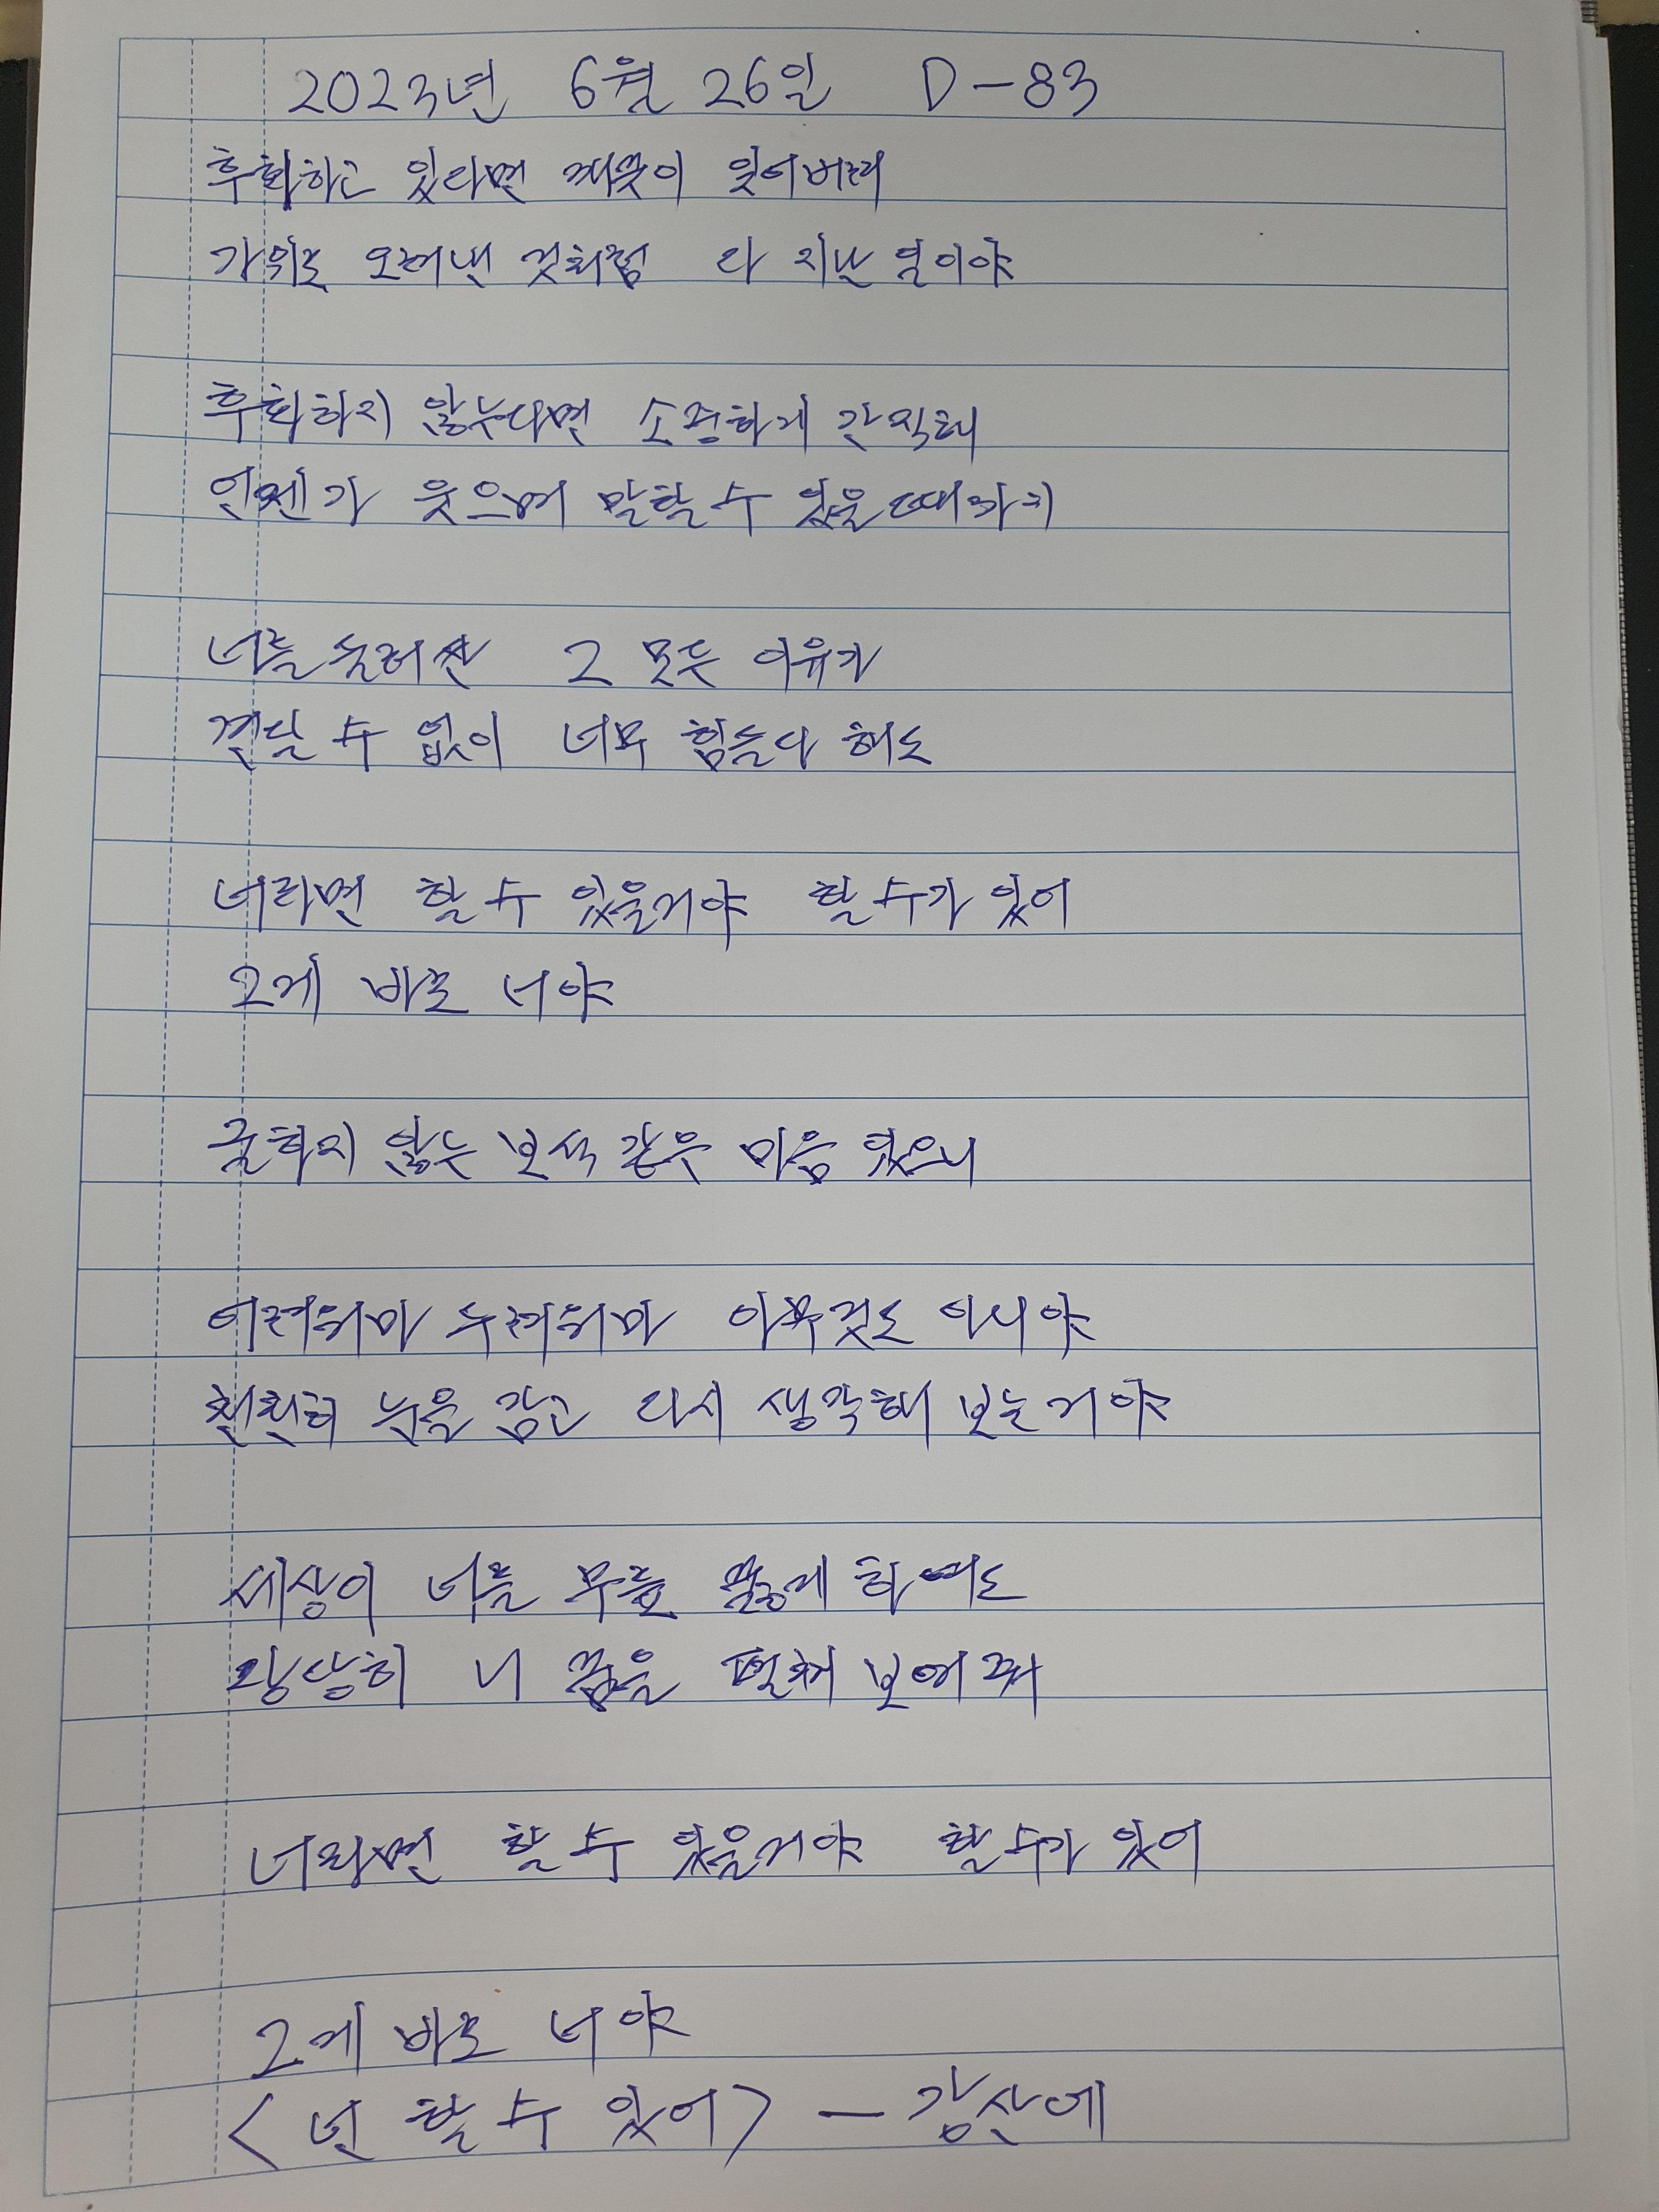 2023년 6월 26일 D-83
후회하고 있다면 깨끗이 잊어버려
가위로 오려낸 것처럼 다 지난 일이야
후회하지 않는다면 소중하게 간직해
언젠가 웃으며 말할 수 있을 때까지
너를 둘러싼 그 모든 이유가
견딜 수 없이 너무 힘들다 해도
너라면 할 수 있을거야 할 수가 있어
그게 바로 너야
굴하지 않는 보석 같은 마음 있으니
어려워마 두려워마 아무것도 아니야
천천히 눈을 감고 다시 생각해 보는거야
세상이 너를 무릎 꿇게 하여도
당당히 니 꿈을 펼쳐 보여줘
너라면 할 수 있을거야 할 수가 있어
그게 바로 너야
<넌 할 수 있어> - 강산에